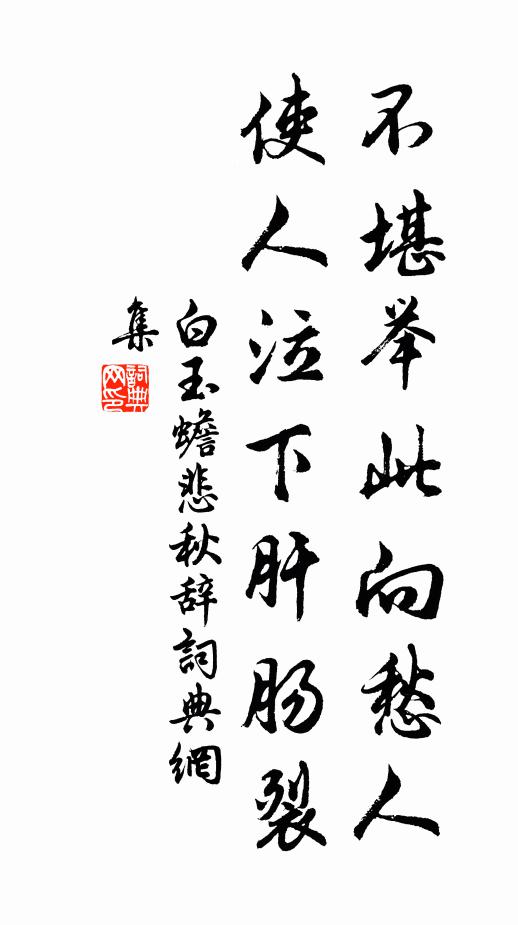 不堪举此向愁人
使人泣下肝肠裂
白玉蟾悲秋辞詞典網
集
詞典网印